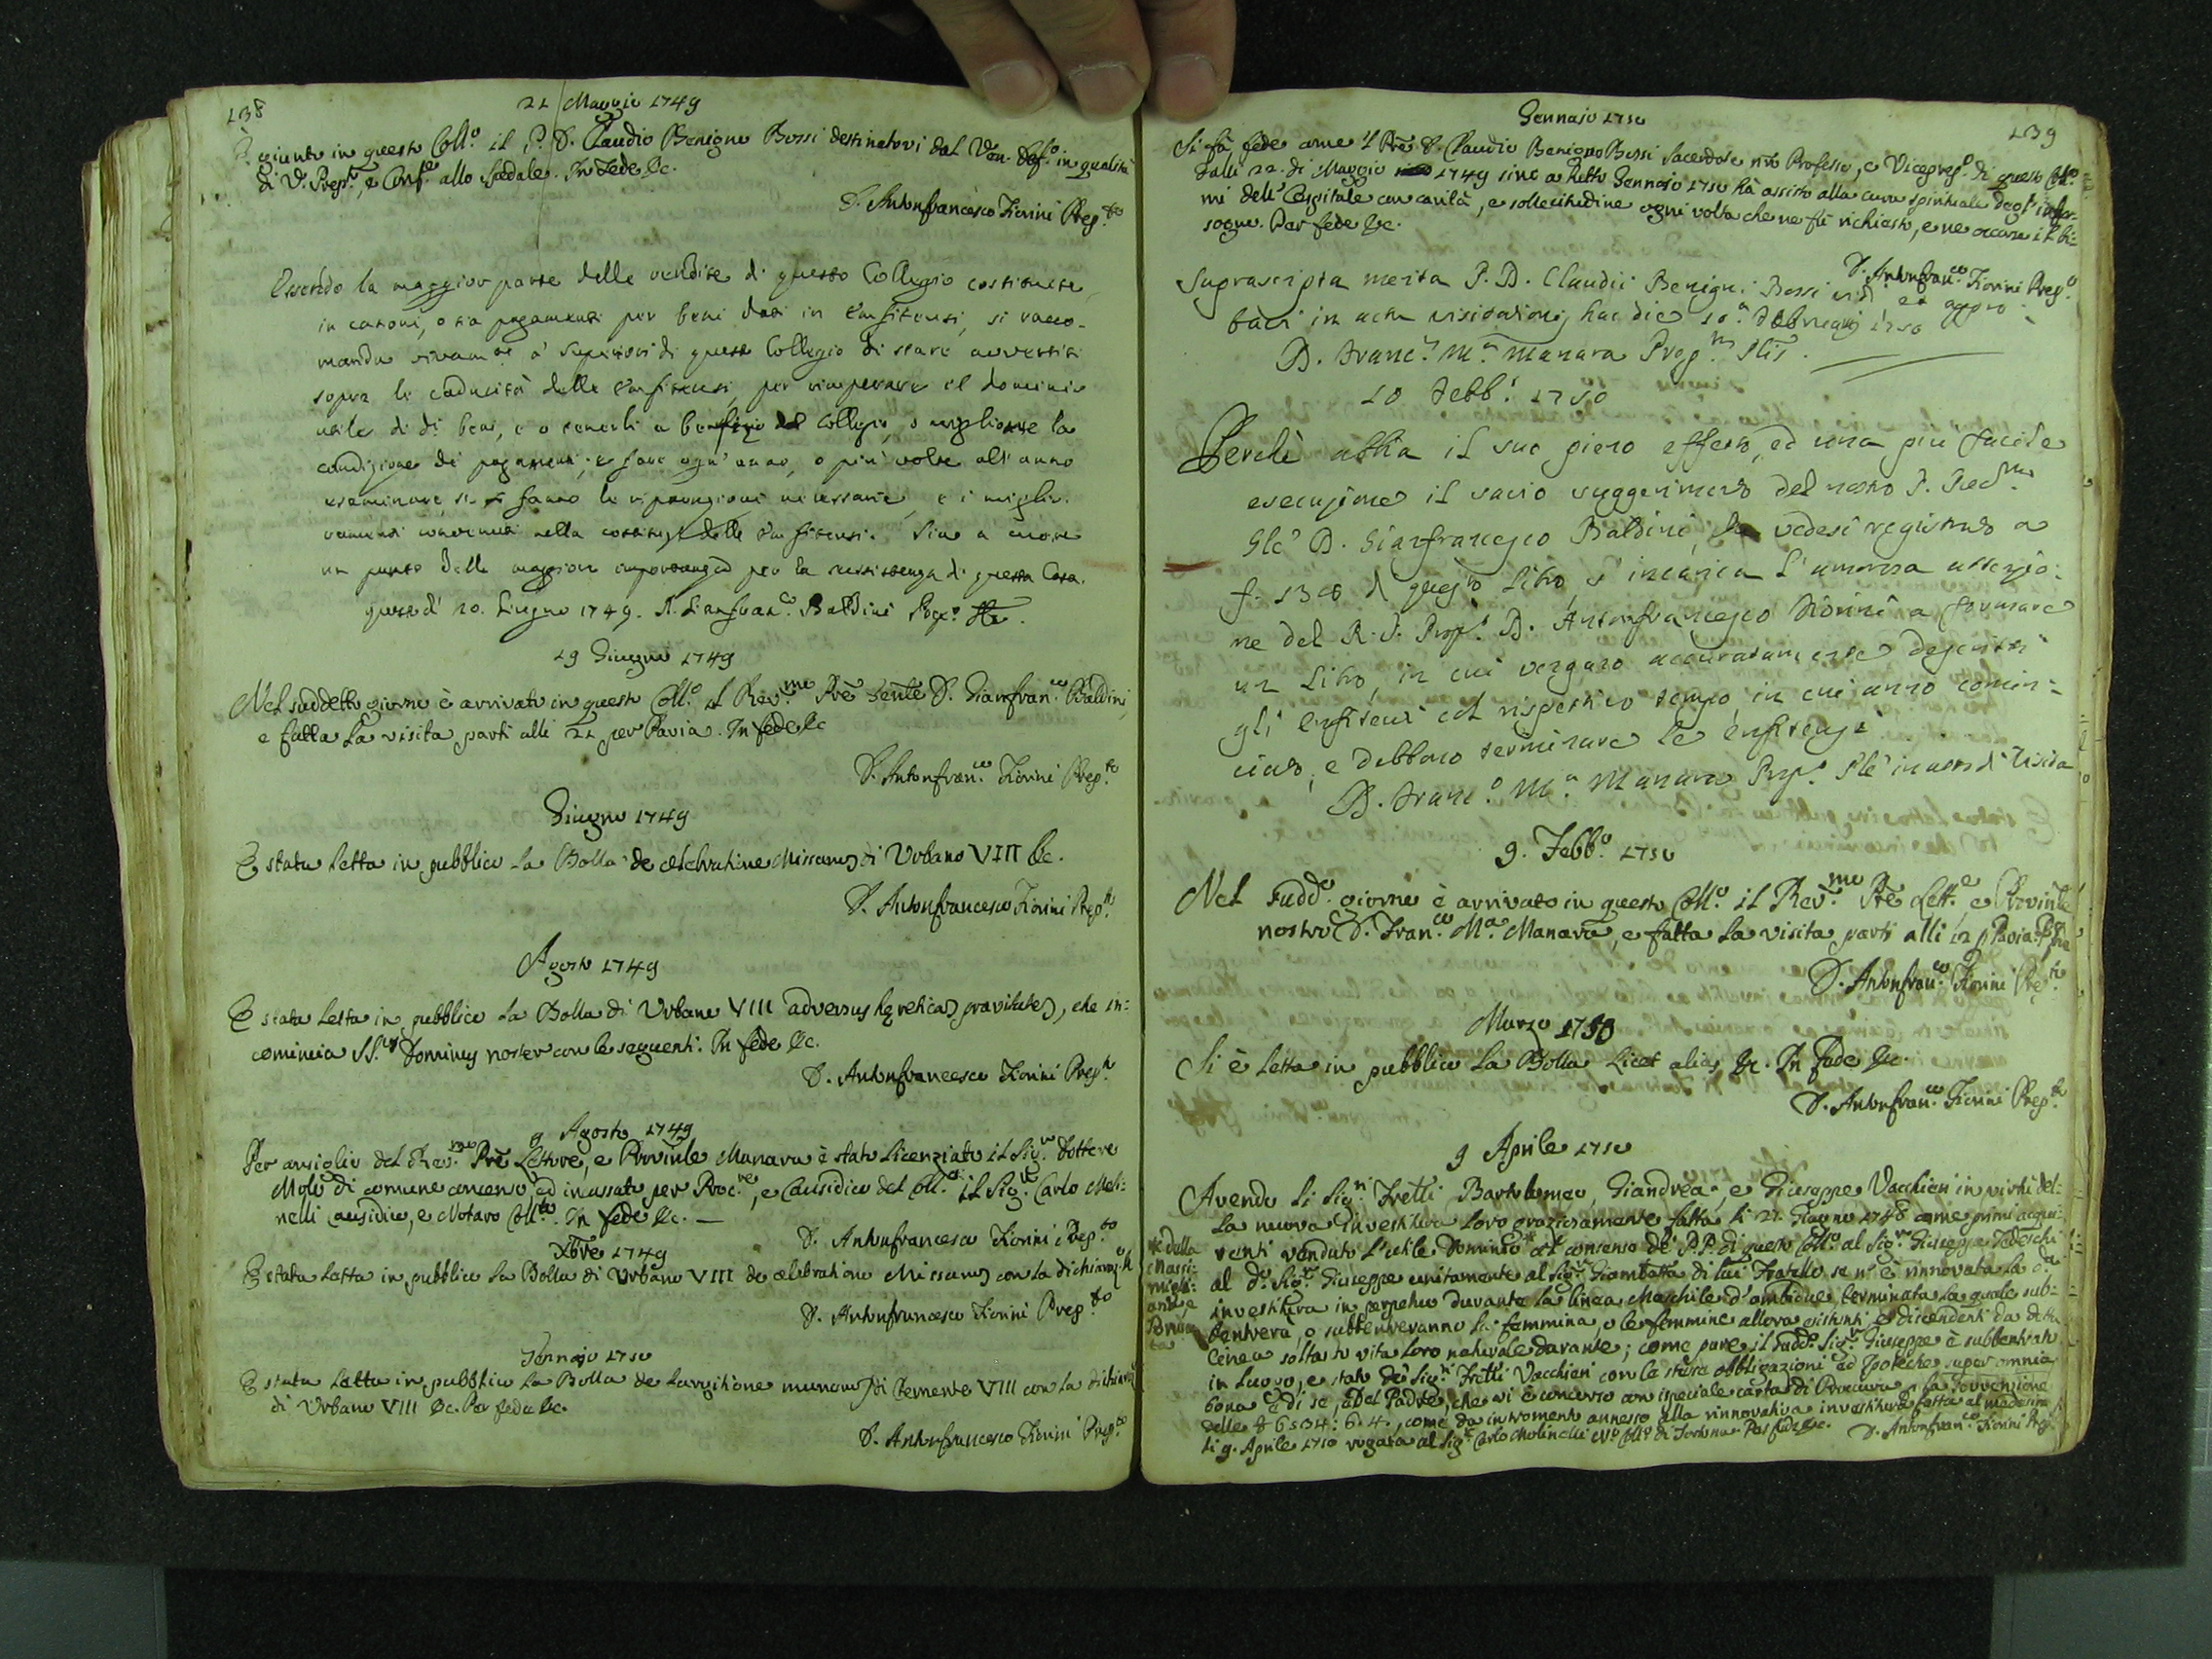 138
21 Maggio 1749
È giunto in questo Coll.o il P. D. Claudio Benigno Bossi destinatovi dal Ven. Def.o in qualità
di V. Prep.to, e Conf.re allo Spedale. In Fede &c.
D. Antonfrancesco Fiorini Prep.to
Essendo la maggior parte delle rendite di questo Collegio costituite
in canoni, o sia pagamenti per beni dati in Enfiteusi, si racco-
manda vivam.te a' Superiori di questo Collegio di stare avvertiti
sopra le caducità delle Enfiteusi, per ricuperare il dominio
utile di d.i beni, e o tenerli a benefizio del Collegio, o migliorare la
condizione de' pagamenti; e fare ogn' anno, o più volte all' anno
esaminare, se si fanno le riparazioni necessarie, e i miglio-
ramenti convenuti nella delle Enfiteusi. Sino a
un punto della maggiore importanza per la sussistenza di questa Casa.
questo dì 20. Giugno 1749. D. Gianfran.co Baldini Prep.o Gle.
19 Giugno 1749
Nel suddetto giorno è arrivato in questo Coll.o il Rev.mo Prē Genle D. Gianfran.co Baldini,
e fatta la visita partì alli 21 per Pavia. In fede &c
D. Antonfran.co Fiorini Prep.to
Giugno 1749
È stata letta in pubblico la Bolla de celebratione Missarum di Urbano VIII &c.
D. Antonfrancesco Fiorini Prep.to
Agosto 1749
È stata letta in pubblico la Bolla di Urbano VIII adversus hereticam pravitatem, che in:
comincia SS.us Dominus noster con le seguenti. In fede &c.
D. Antonfrancesco Fiorini Prep.to
9 Agosto 1749
Per consiglio del Rev.mo Prē Lettore, e Provinle Manara è stato licenziato il Sig.r Dottore
Molo di comune consenso, ed in per Proc.re, e Causidico del Coll.o il Sig.r Carlo Moli:
nelli causidico, e Notaro Coll.to. In fede &c. —
D. Antonfrancesco Fiorini Prep.to
Xbre 1749
È stata letta in pubblico la Bolla di Urbano VIII de celebratione Missarum con la dichiaraz.e
D. Antonfrancesco Fiorini Prep.to
Gennajo 1750
È stata letta in pubblico la Bolla de largitione munerum di Clemente VIII con la dichiaraz.e
di Urbano VIII &c. Per fede &c.
D. Antonfrancesco Fiorini Prep.to
139
Gennajo 1750
Si fà fede come il Prē D. Claudio Benigno Bossi Sacerdote nrō Professo, e Viceprep.o di questo Coll.o
dalli 22. di Maggio 1749 sino a tutto Gennajo 1750 hà assisto alla cura spirituale degl' infer-
mi dell' Ospitale con carità, e sollecitudine ogni volta che ne fù richiesto, e ne occorse il bi:
sogno. Per fede &c.
D. Antonfran.co Fiorini Prep.o
Suprascripta merita P. D. Claudii Benigni Bossi vidi et appro:
bavi in actu visitationis hac die 10.a Februarij 1750
D. Franc.s M.a Manara Prep.us Plis.
10 Febb.o 1750
Perchè abbia il suo pieno effetto, ed una più facile
esecuzione il savio suggerimento del nostro P. Rev.mo
Gle D. Gianfrancesco Baldini, vedesi registrato a
f. 138 di questo Libro, s' incarica l' amorosa attenzio:
ne del R. P. Prep.o D. Antonfrancesco Fiorini a formare
un Libro, in cui vengano accuratamente descritti
gli Enfiteusi col rispettivo tempo, in cui anno comin:
ciato, e debbono terminare le enfiteusi
D. Franc.o M.a Manara Prep.o Ple in atto di Visita
9. Febb.o 1750
Nel sudd.o giorno è arrivato in questo Coll.o il Rev.mo Prē Lett.e, e Provinle
nostro D. Fran.co M.a Manara, e fatta la visita partì alli 12 p Pavia.
D. Antonfran.co Fiorini Prep.to
Marzo 1750
Si è letta in pubblico la Bolla Licet alias &c. In fede &c.
D. Antonfran.co Fiorini Prep.to
9 Aprile 1750
Avendo li Sig.ri Fretti Bartolomeo, Giandrea, e Giuseppe Vacchieri in virtù del:
la nuova investitura loro graziosamente fatta li 27. Giugno 1748 come primi acqui:
renti venduto l' utile Dominio col consenso de' P.P. di questo Coll.o al Sig.r Giuseppe Tedeschi
al d.o Sig.r Giuseppe unitamente al Sig.r Giambatta di lui Fratello se n' è rinnovata la d.a
investitura in perpetuo durante la linea Maschile d' ambidue, terminata la quale sub:
bentrerà, o subbentreranno la femmina, o le femmine allora esistenti, e discendenti da detta
linea soltanto vita loro naturale durante; come pure il sudd.o Sig.r Giuseppe è subbentrato
in luogo, e stato de' Sig.ri Fretti Vacchieri con le stesse obbligazioni ed Ipoteche super omnia
bona e di se, e del Padre, che vi è concorso con ispeciale carta di Procura, e la Sovvenzione
delle £ 6534: 6. 4., come da instromento annesso alla rinnovativa investitura fatta al medesimo
li 9. Aprile 1750 rogata al Sig.r Carlo Molinelli N.o Coll.o di Tortona. Per fede &c. D. Antonfran.co Fiorini Prep.to